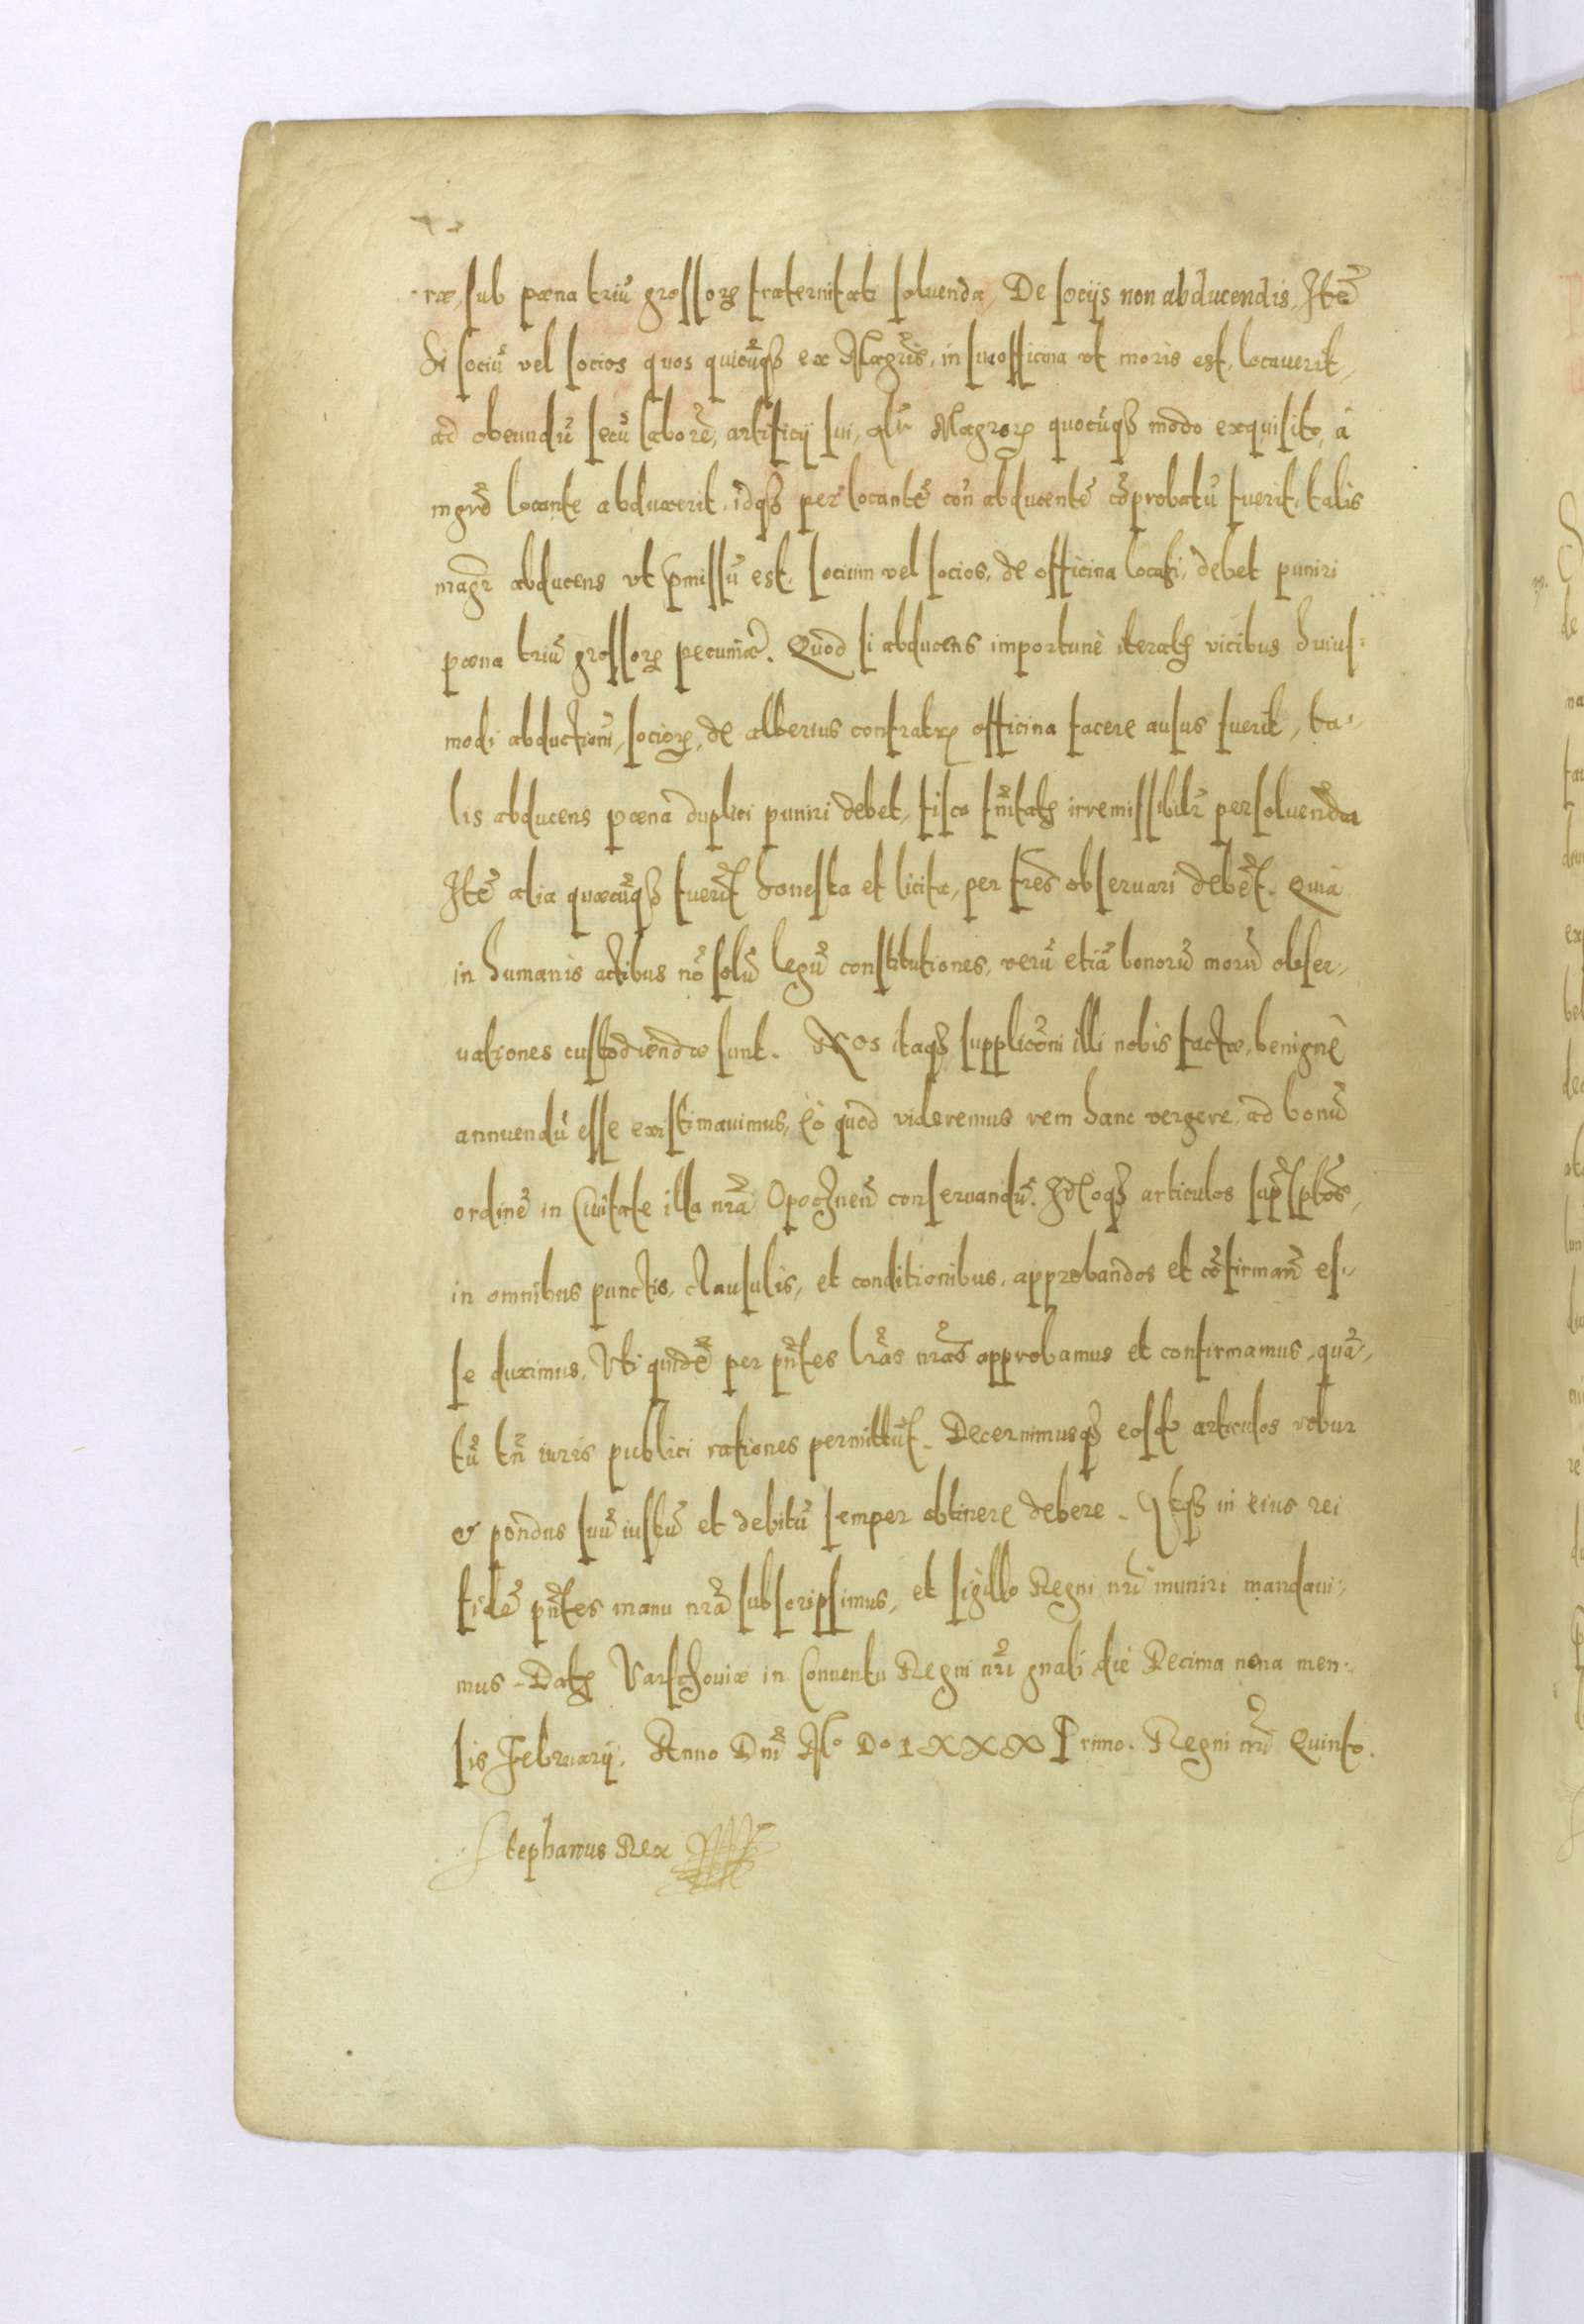 ræ, sub pœna triũ grossoꝝ fraternitati soluenda, De socijs non abducendis. Itẽ
Si sociũ vel socios quos quicũqȝ ex Magr̃is, in sua officina vt moris est, locauerit,
ad obeundũ secũ laborẽ, artificij sui, alr̃ Magroꝝ quocũqȝ modo exquisito, â
mgrõ locante abduxerit, idqȝ per locantẽ con abducentẽ cõprobatũ fuerit, talis
magr̃ abducens vt p̃missũ est, socium vel socios, de officina locati, debet puniri
pœna triũ grossoꝝ pecuniæ. Quod si abducens importunè iteratis vicibus huius-
modi abductionẽ, socioꝝ, de alterius confratrꝝ officina facere ausus fuerit, ta-
lis abducens pœna duplici puniri debet, fisco fr̃nitatis irremissibilr̃ persoluenda
Itẽ alia quæcũqȝ fuerĩt honesta et licita, per fres̃ obseruari debẽt. Quia
in humanis actibus nõ solũ legũ constitutiones, verũ etiã bonorũ morũ obser-
uationes custodiendæ sunt. Nos itaqȝ supplicõni illi nobis factæ, benignè
annuendũ esse existimauimus, Eò quod videremus rem hanc vergere, ad bonũ
ordinẽ in Ciuitate illa nr̃a Opocznen̄ conseruandũ. Ideoqȝ articulos supr̃sptos̃,
in omnibus punctis, clausulis, et conditionibus, approbandos et cõfirman̄ es-
se duximus, Vti quidẽ per pñtes lr̃as nr̃as approbamus et confirmamus, quã-
tũ tñ iuris publici rationes permittũt. Decernimusqȝ eosdẽ articulos robur
& pondus suũ iustũ et debitũ semper obtinere debere. In eius rei
fidẽ pñtes manu nr̃a subscripsimus, et sigillo Regni nr̃i muniri mandaui-
mus. Datȝ Varschouiæ in Conuentu Regni nr̃i gñali die Decima nona men-
sis February. Anno Dnĩ Mº Dº LXXX Primo. Regni nr̃i Quinto.
Stephanus Rex